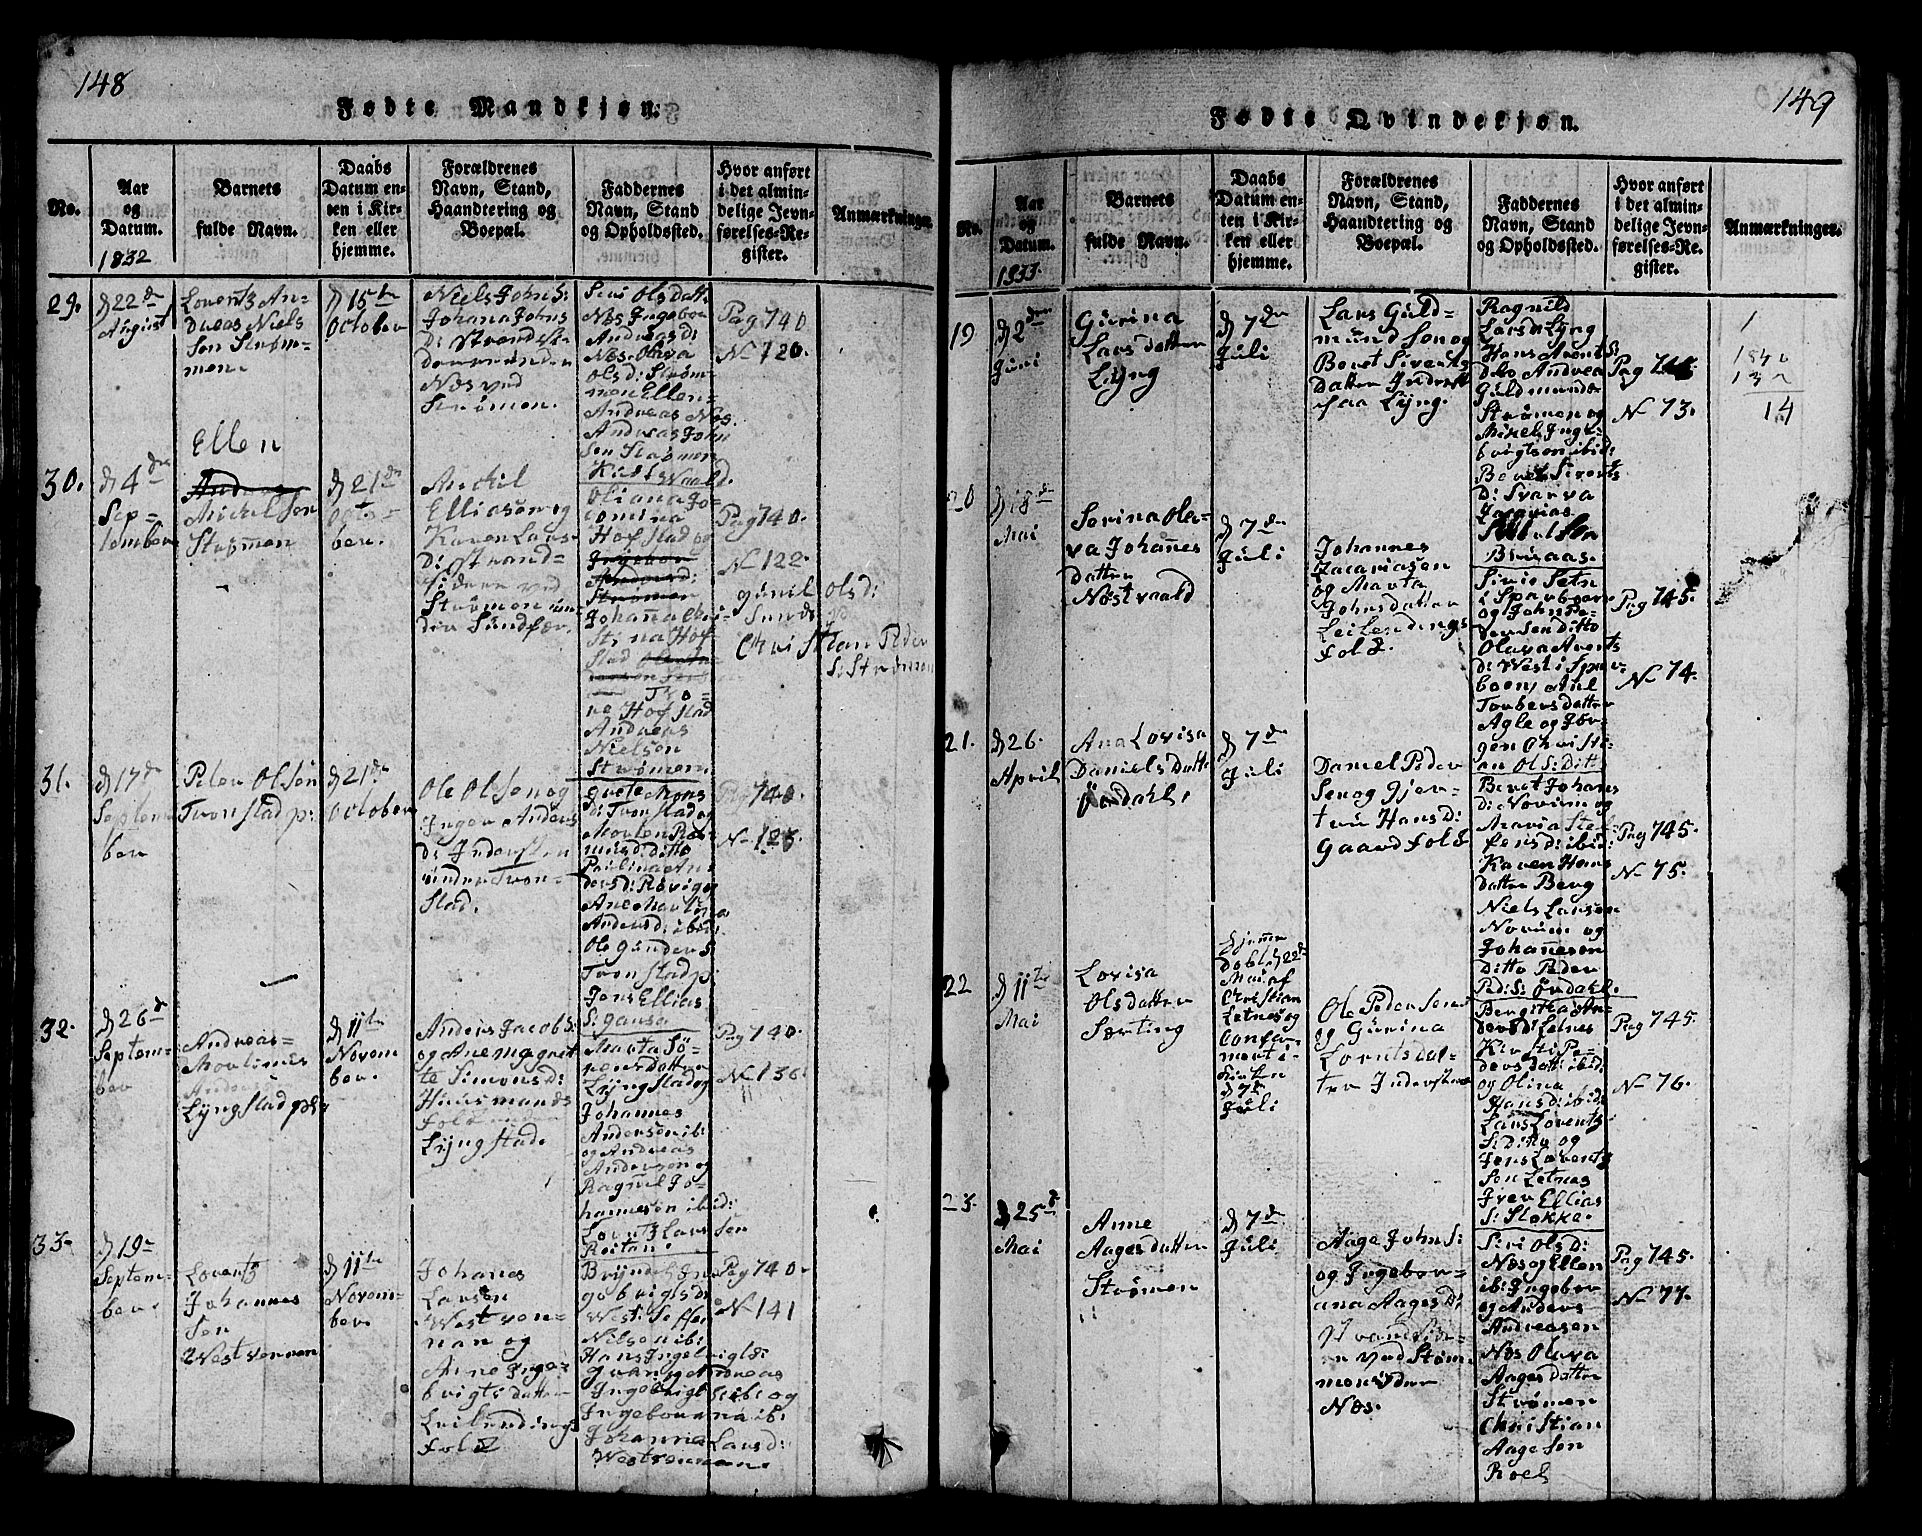 148
Fødte Mandkjøn.
No.
Aar
og
Datum.
1832
Barnets
fulde Navn.
Daabs
Datum en-
ten i Kir-
ken eller
hjemme.
Forældrenes
Navn, Stand,
Haandtering og
Boepæl.
Faddernes
Navn, Stand
og Opholdssted.
Hvor anført
i det almin-
delige Jevn-
førelses-Re-
gister.
Anmærkninger.
29.
d 22de
August
Lorentz An-
dreas Niels
Sen Strøm-
men.
d 15te
October
Niels John S:
Johana Johns
D: Strandsid-
dere under
Næs ved
Strømen.
Siri Ols datt:
Næs Ingebor
Andreas d:
Næs Oliva
Ols d: Strøm-
men Ellen
Andreas Næs
Andreas John
Sen Strømen
Pag 740
No 120.
30.
d 4de
Sep-
tember
Ellen
Michel Sen
Strømen
d 21de
Octo-
ber.
Michel
Elliasen og
Karen Lars
D: Strand-
sidere ved
Strømen un-
der Sundfær.
Oliana Ja-
comina
Hofstad og
Ingebor
Strømen
Johanna Chri-
Stina Hof-
stad
Tro-
ne Hofstad
Andreas
Nielsen
Strømen.
Pag 740.
No 122.
Gunil Ols d:
Sunds
Christian Peder
S: Strømen
31.
d 17de
Septem
ber
Peter Olsøn
Tronstad p:
d 21de
October
Ole Olsen og
Inger Anders
D: Inderster
under Tron-
stad.
Grete Mons
D: Tronstad og
Morten Ras-
mus d: ditto
Paulina An-
ders d: Røvig og
Ane Marta
Anders d: ibid:
Ole Gunder S
Tronstad p:
Jens Ellias
S: Gansa
Pag 740.
No 125.
32.
d 26d
Septem-
ber
Andreas
Mortinus
Andersen
Lyngstad p:
d 11te
Novem
ber.
Anders Jacob S:
og Ane Magret
te Simons d:
Huusmands
folk
Lyngstad.
Marta Sø-
rens datter
Lyngstad og
Johannes
Andersen ib:
og Andreas
Andersen og
Ragnel Jo-
hannesen ibid:
Lorntz Lars Sen
Reitan.
Pag 740.
No 136.
33.
d 19de
Septem-
ber.
Lorentz
Johannes
Sen
Westrenen
d 11te
Novem-
ber
Johanes
Larsen
Westren-
nan og
Ane Inge-
brigts datter
Leilendings
folk
Brynel In
gebrigts d:
West: Seffer
Nilsen ib:
Hans Ingebrigtsen
Ingebrigt S: ib: og
Ingeborana ib:
Johanna Lars d:
Westrennan.
Pag 740.
No 141

149
Fødte Qvindekjøn.
No.
Aar
og
Datum.
1833.
Barnets
fulde Navn.
Daabs
Datum en-
ten i Kir-
ken eller
hjemme.
Forældrenes
Navn, Stand,
Haandtering og
Boepæl.
Faddernes
Navn, Stand
og Opholdssted.
Hvor anført
i det almin-
delige Jevn-
førelses-Re-
gister.
Anmærkninger.
19
d 2den
Juni
Gurina
Lars datter
Lyng
d 7de
Juli
Lars Guld-
mund Sen og
Beret Siverts
Datter Inderst
paa Lyng.
Ragnild
Lars d: Lyng
Hans Arents S:
dito Andrea
Guldmunds
Strømen og
Mikel Inge-
brigtsen ibid:
Beret Siverts
D: Svarva
Zacarias
Birkaas.
Pag 745
No 73.
1
1840
132
14
20
d 18de
Mai
Serina Ole-
va Johannes
datter
Næstvaald
d 7de
Juli
Johannes
Zacariasen
og Marta
Johns datter
Leilendings
folk.
Siri Setn
i Sparboen
og John Pe-
der Sen ditto
Olava Arents
D: West i Spar-
boen Anl
Torbers datter
Agle og Jør-
gen Christi-
an Ol S: Ditto
Pag 745.
No 74.
21.
d 26.
April
Ana Lovisa
Daniels Datter
Ørdahl.
d 7de
Juli
Daniel Peder
Sen og Gjer-
tru Hans D:
Gaardfolk
Beret Johans
D: Norum og
Maria Stef-
fens d: ibid:
Karen Hans
datter Berg
Niels Larsen
Norum og
Johannesen
Ditto Peder
Ped: S: Ørdahl.
Pag 745.
No 75.
22
d 11te
Mai
Lovisa
Ols datter
Sørting
Hjemme
døbt d 22de
Mai af
Christian
Letnes og
Confir-
mert i
Kirken
d 7de
Juli
Ole Peder Sen
og Gurina
Lornts dat-
ter Inderster
Berget
ders d: Letnes
Kirsti Pe-
ders d: ibid:
og Olina
Hans d: ibid:
Lars Lorents
S: dito og
Jens Lorents
Sen Letnes
Iver Ellias
S: Stokke.
Pag 745.
No 76.
23.
d 25d
Mai
Anne
Aages datter
Strømen
d 7de
Juli
Aage John S:
og Ingebor-
ana Aages D:
Strandsid-
er ved Strøm-
men under
Næs.
Siri Ols D:
Næs og Ellen
ib: Ingebor
og Anders
Andreasen
Næs Olava
Aages datter
Strømen
Christian
Aage Sen
Roel
Pag 745.
No 77.